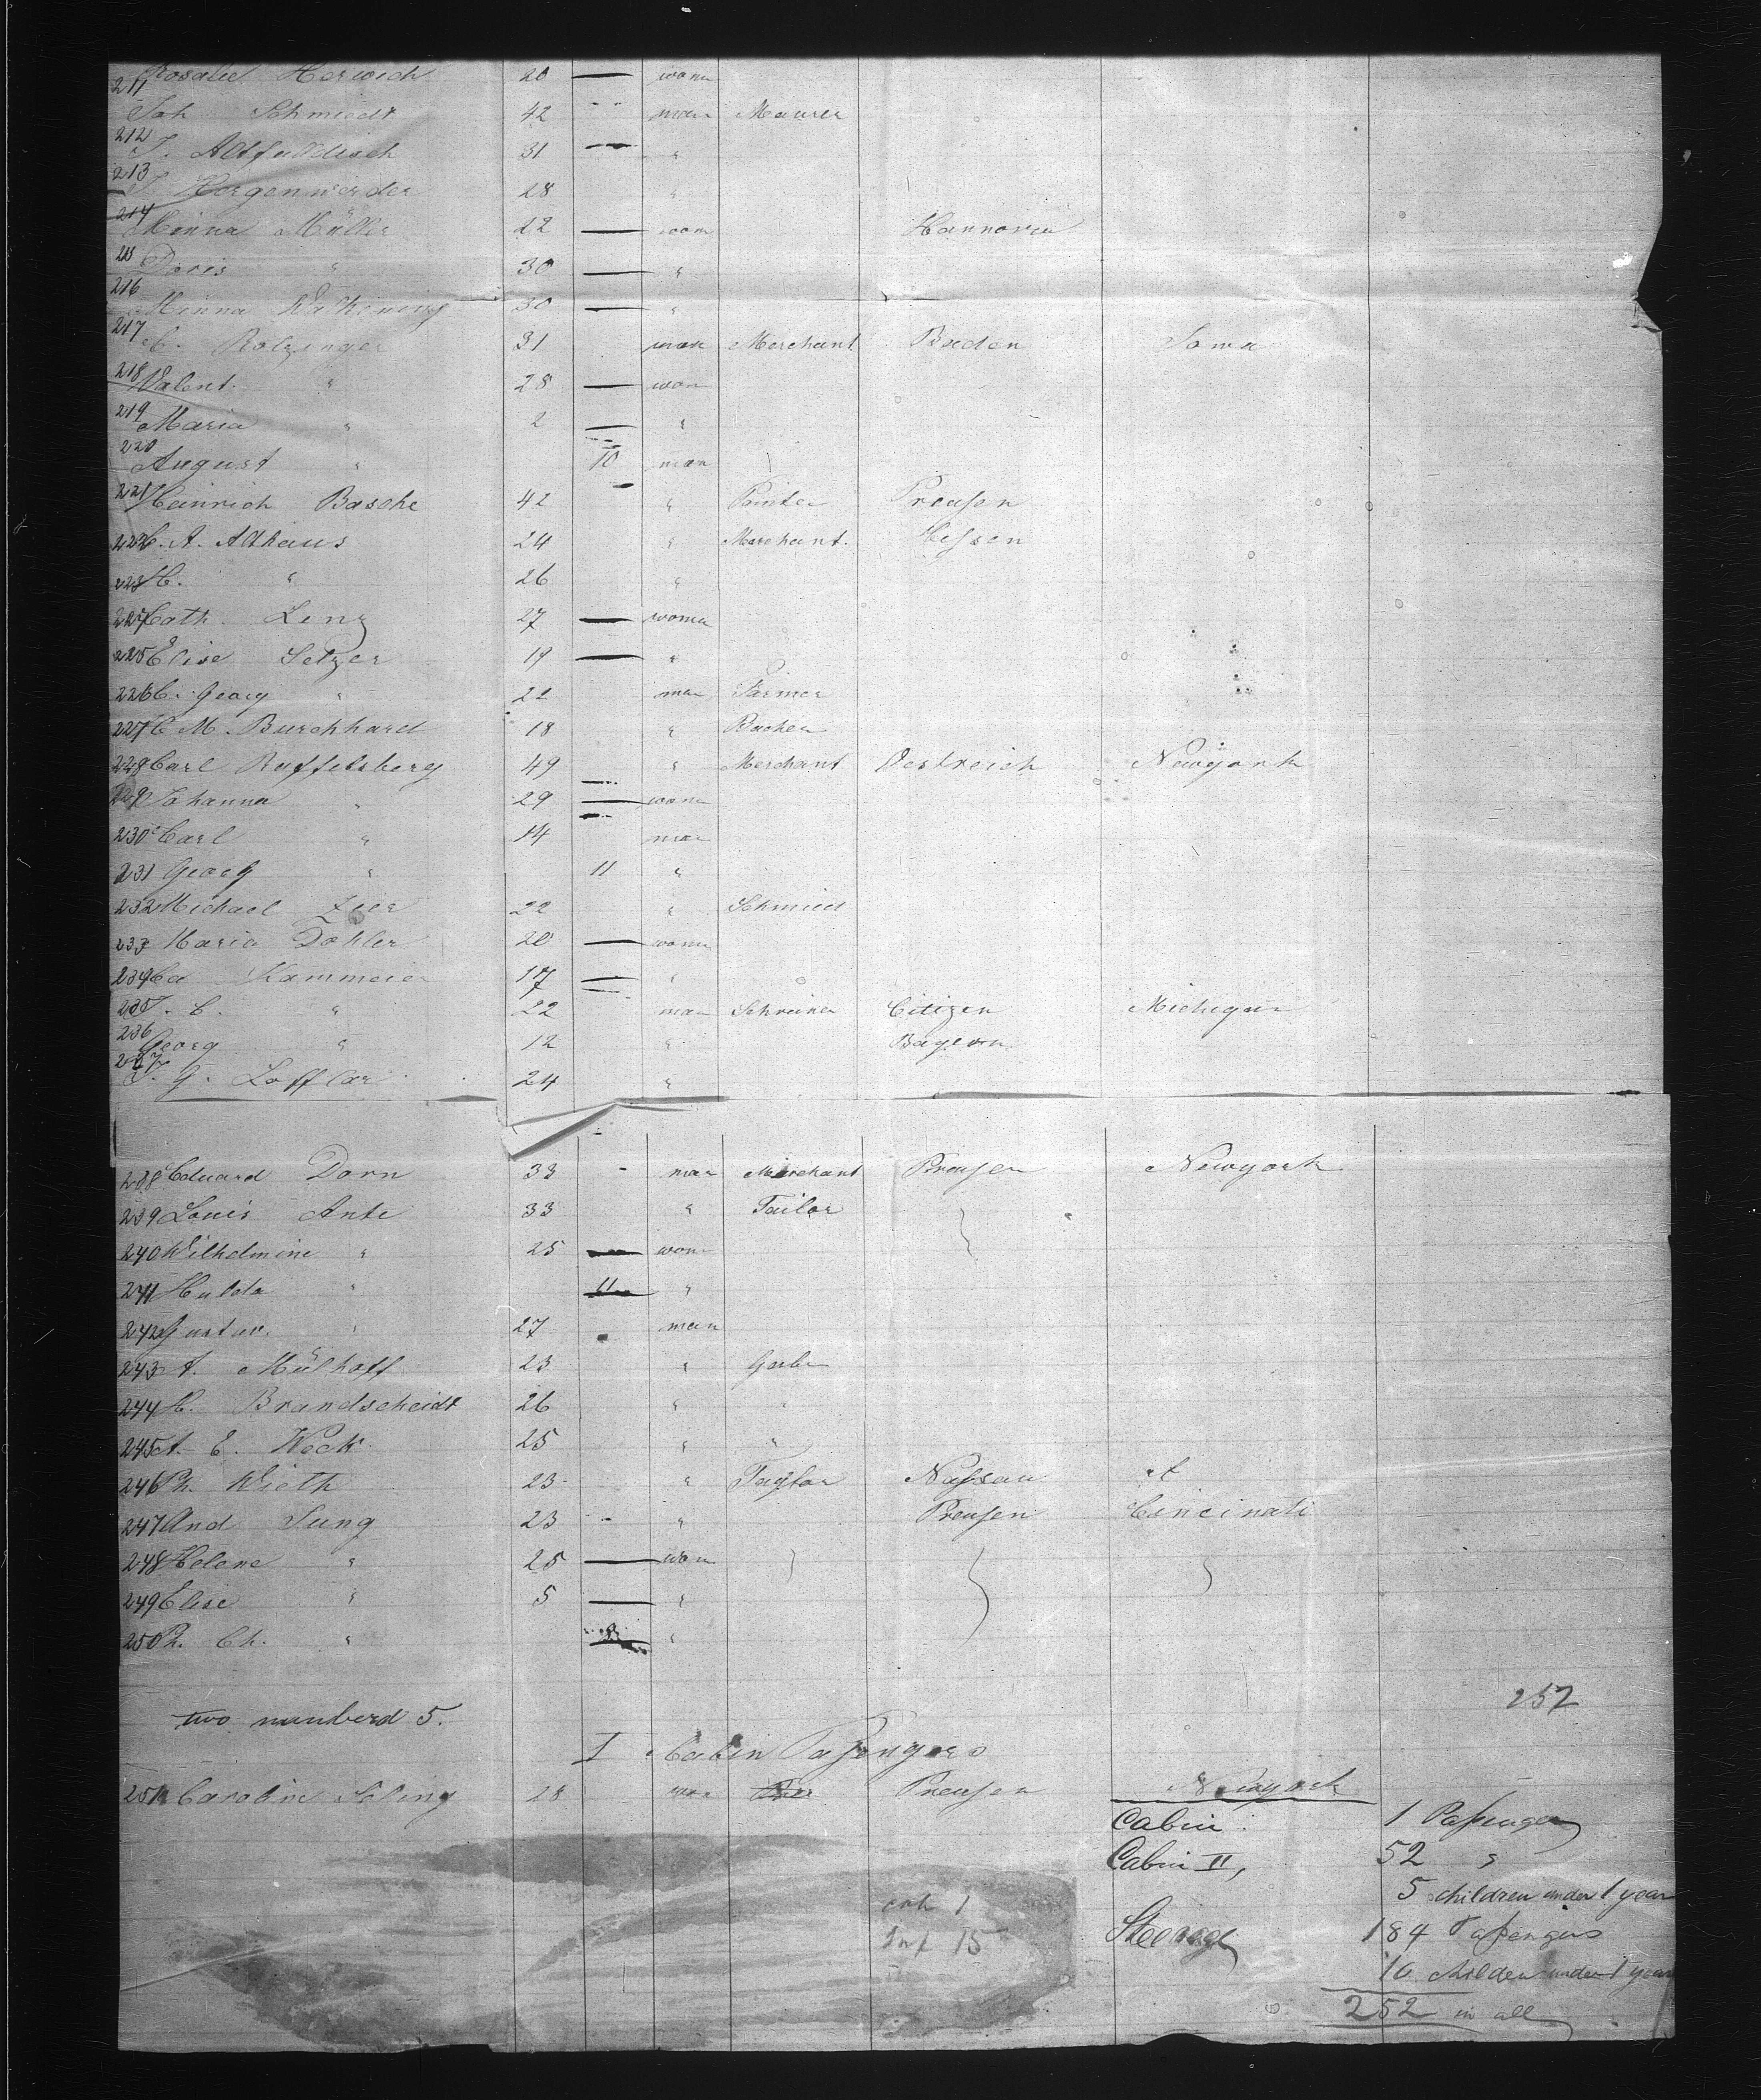 211 Rosalie Herwich 20 — woma
Joh Schmiedt 42 man Maurer
212 J. Altfuldisch 31 — "
213 J. Hergenwerder 28 "
214 Minna Müller 22 — wom Hannover
215 Doris " 30 — "
216 Minna 30 — "
217 C. Rolzinger 31 man Merchant Baden Iowa
218 Valent. " 28 — wom
219 Maria " 2 — "
220 August " 10 man
221 Heinrich Basche 42 " Painter Preussen
222 C. A. Althaus 24 " Merchant. Hessen
223 H. " 26 "
224 Cath. Lenz 27 — woma
225 Elise Setzer 19 — "
226 C. Georg " 22 man Farmer
227 C M. Burchhard 18 " Backer
228 Carl Raffelsberg 49 " Merchant Oestreich Newyork
229 Johanna " 29 — wom
230 Carl " 14 man
231 Georg " 11 "
232 Michael Zier 22 " Schmied
233 Maria Dohler 20 — woma
234 Ca Kammeier 17 — "
235 J. C. " 22 man Schreiner Citizen Michigan
236 Georg " 12 " Bayern
237 J. G. Lofflar 24 "
238 Eduard Dorn 33 man Merchant Preussen Newyork
239 Louis Ante 33 " Tailor
240 Wilhelmine " 25 — wom
241 Hulda " 11 "
242 Gustav. " 27 man
243 A. Mülhoff 23 " Gerber
244 H. Brandscheidt 26 " "
245 A. E. Weck 25 " "
246 Ph. Wieth 23 " Taylor Nassau
247 And Jung 23 " Preussen Cincinati
248 Helene " 25 — wom
249 Elise " 5 — "
250 Ph. Ch. " "
252
two numberd 5.
I Cabin Passengers
251 Caroline Soling 28 wom Preussen Newyork
Cabin 1 Passenger
Cabin II, 52 "
5 children under 1 year
cab 1
Steerage 184 Passengers
Inf 15
10 children under 1 year
252 in all